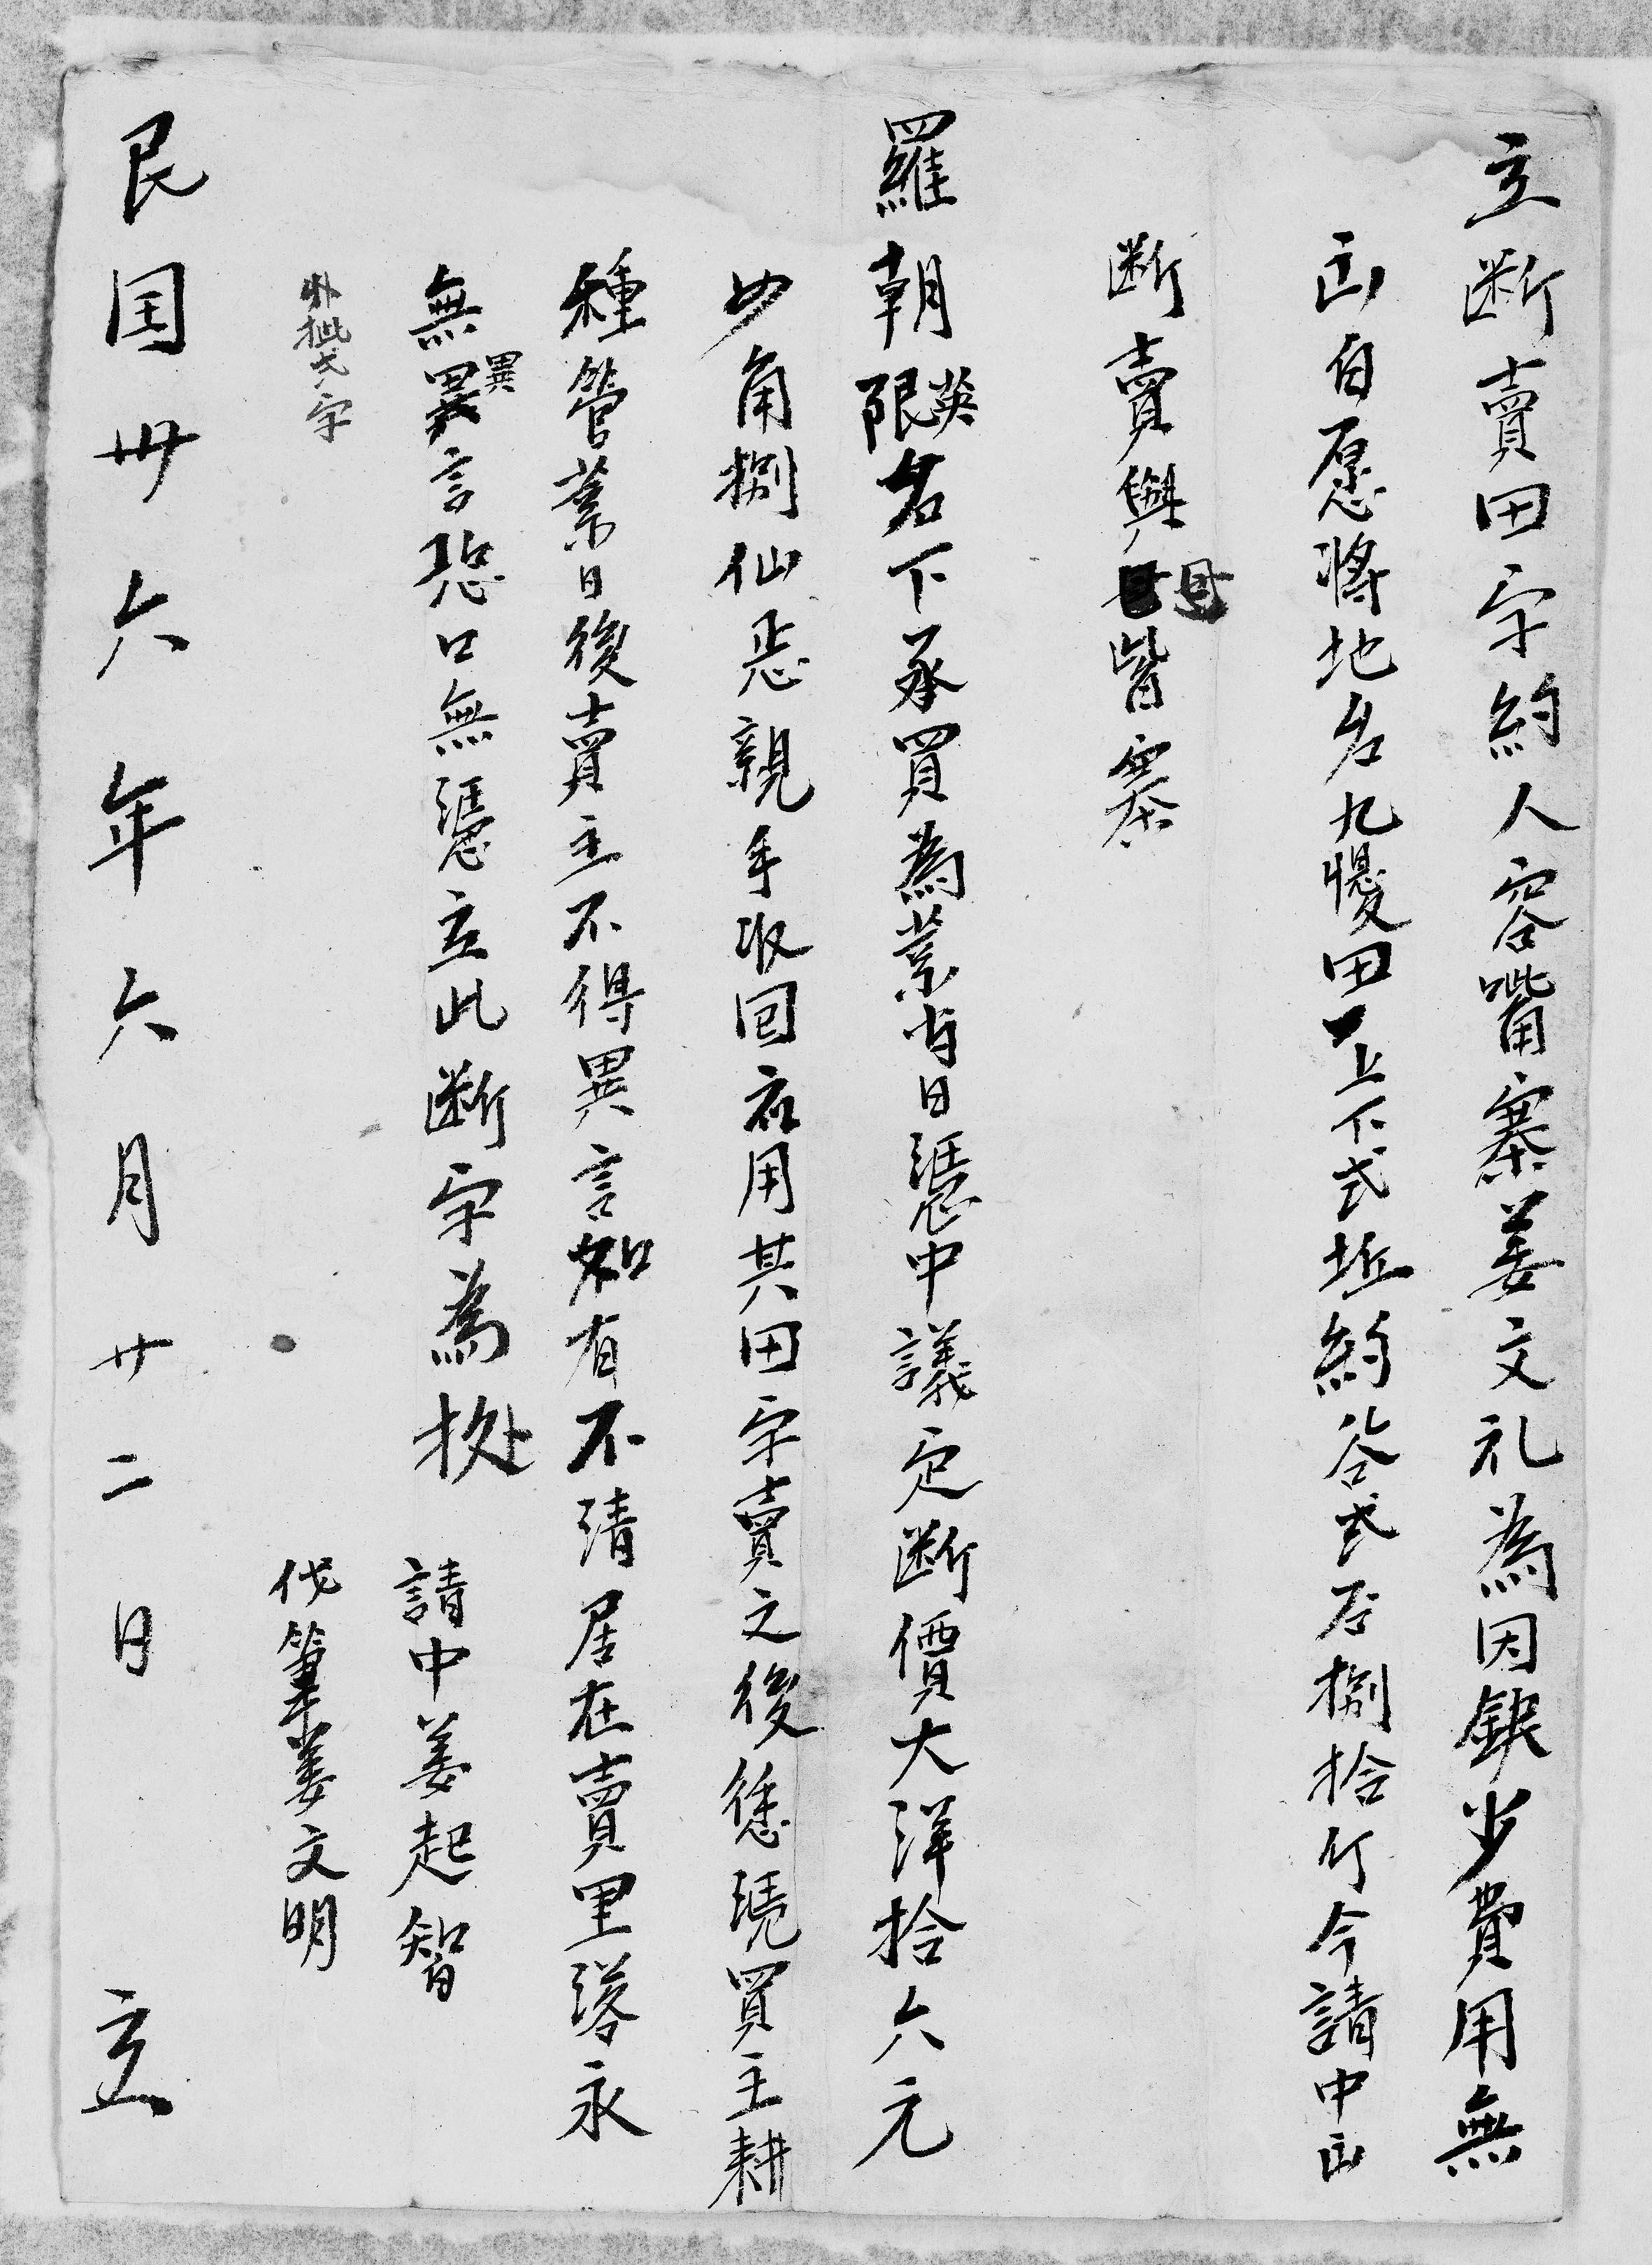 立断賣田字約人容嘴寨姜文礼為因銀少費用無
出自愿將地名九慢田上下弍坵約谷弍石捌拾斤今請中出
断賣與皆寨
羅朝英限名下承買為業当日憑中議定断價大洋拾六元
四角捌仙悉親手收回衣用其田字賣之後恁憑買主耕
種管業日後賣主不得異言如有不清居在賣里落永
無異言恐口無憑立此断字為拠
請中姜起智
外批弍字
代筆姜文明
民国卅六年六月廿二日 立